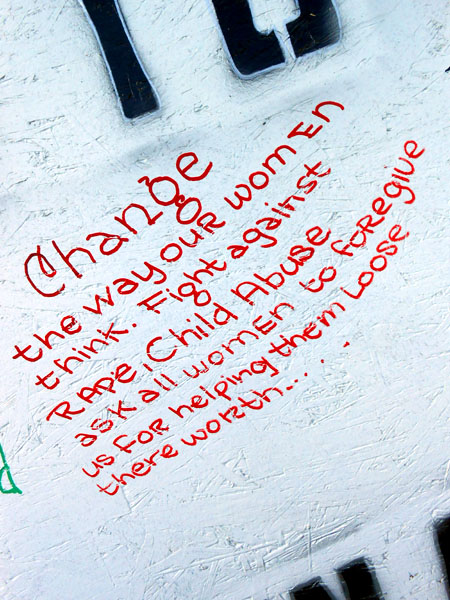 TO
Change
the way our womEn
think. Fight against
RAPE, Child Abuse
ask all womEn to foregive
us for helping them Loose
there worth.....